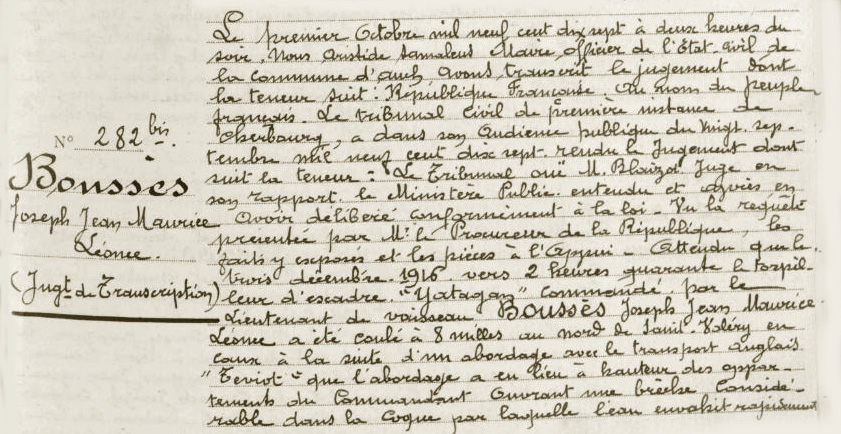 Le premier Octobre mil neuf cent dix sept à deux heures du
soir. Nous Aristide Samaleus Maire, officier de l'État-civil de
la commune d'auch, avons transcrit le jugement dont
la teneur suit : République Française. Au nom du peuple
français. Le tribunal civil de première instance de
Cherbourg, a dans son Audience publique du vingt sep-
tembre mil neuf cent dix sept. rendu le Jugement dont
suit la teneur : Le Tribunal oui M. Blaizot Juge en
son rapport. le Ministère Public entendu et après en
Avoir délibéré conformément à la loi - Vu la requête
présentée par Mr le Procureur de la République, les
faits y exposés et les pièces à l'Appui - Attendu que le
trois décembre 1916 vers 2 heures quarante le torpil-
leur d'escadre "Yatagan" commandé par le
Lieutenant de vaisseau Boussès Joseph Jean Maurice
Léonce a été coulé à 8 milles au nord de Saint Valéry en
caux à la suite d'un abordage avec le transport anglais
"Teviot" que l'abordage a eu lieu à hauteur des appar-
tements du Commandant Ouvrant une brèche considé-
rable dans la coque par laquelle l'eau envahit rapidement
No 282 bis.
Boussès
Joseph Jean Maurice
Léonce.
(Jugt de Transcription)